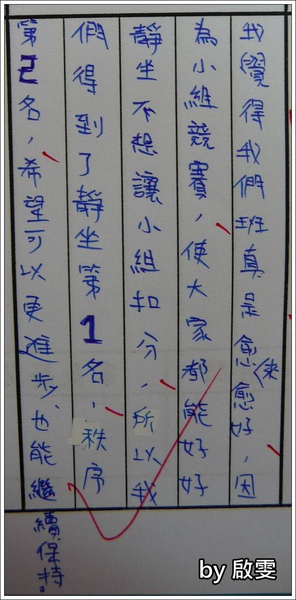 我覺得我們班真是愈來愈好，因
為小組競賽，使大家都能好好
靜坐不想讓小組扣分，所以我
們得到了靜坐第1名，秩序
第2名，希望可以更進步、也能繼續保持！
by 啟雯